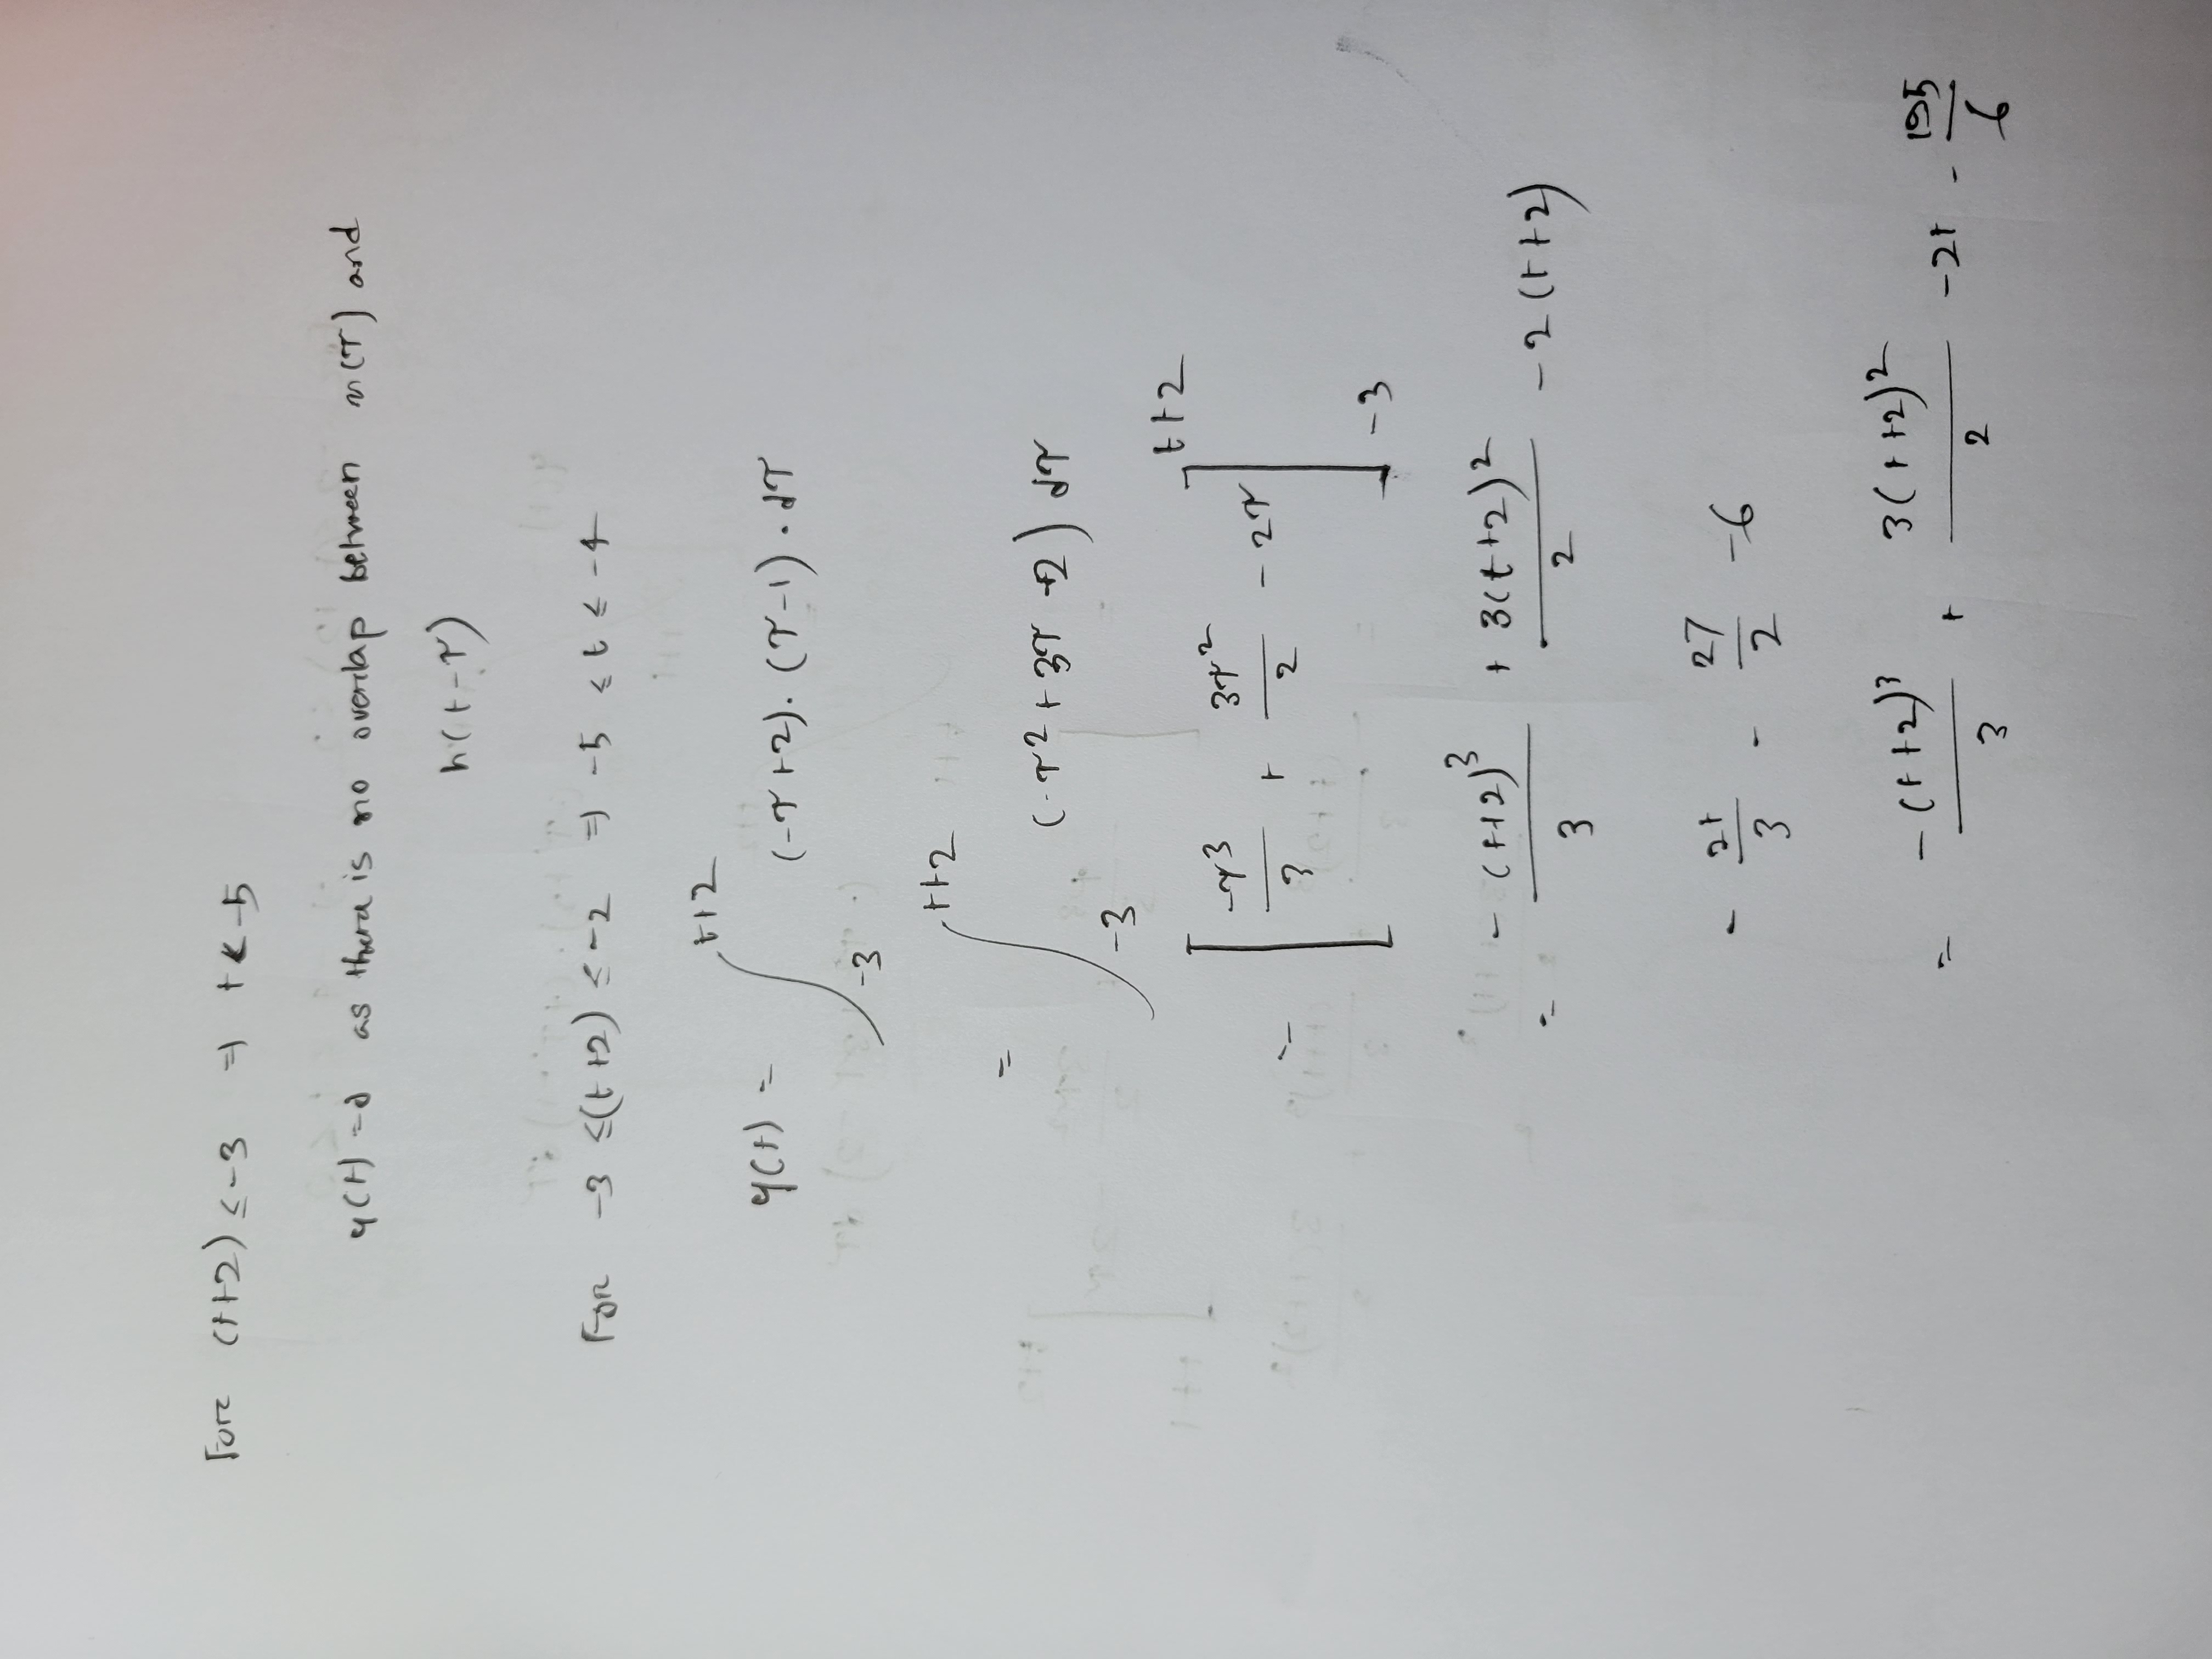 For (t+2) ≤ -3 ⇒ t < -5
y(t) = 0 as there is no overlap between x(τ) and
h(t-τ)
For -3 ≤ (t+2) ≤ -2 ⇒ -5 ≤ t ≤ -4
y(t) = ∫_{-3}^{t+2} (-τ+2).(τ-1).dτ
= ∫_{-3}^{t+2} (-τ²+3τ-2) dτ
= [-τ³/3 + 3τ²/2 - 2τ]_{-3}^{t+2}
= -(t+2)³/3 + 3(t+2)²/2 - 2(t+2)
- 27/3 - 27/2 - 6
= -(t+2)³/3 + 3(t+2)²/2 - 2t - 195/6